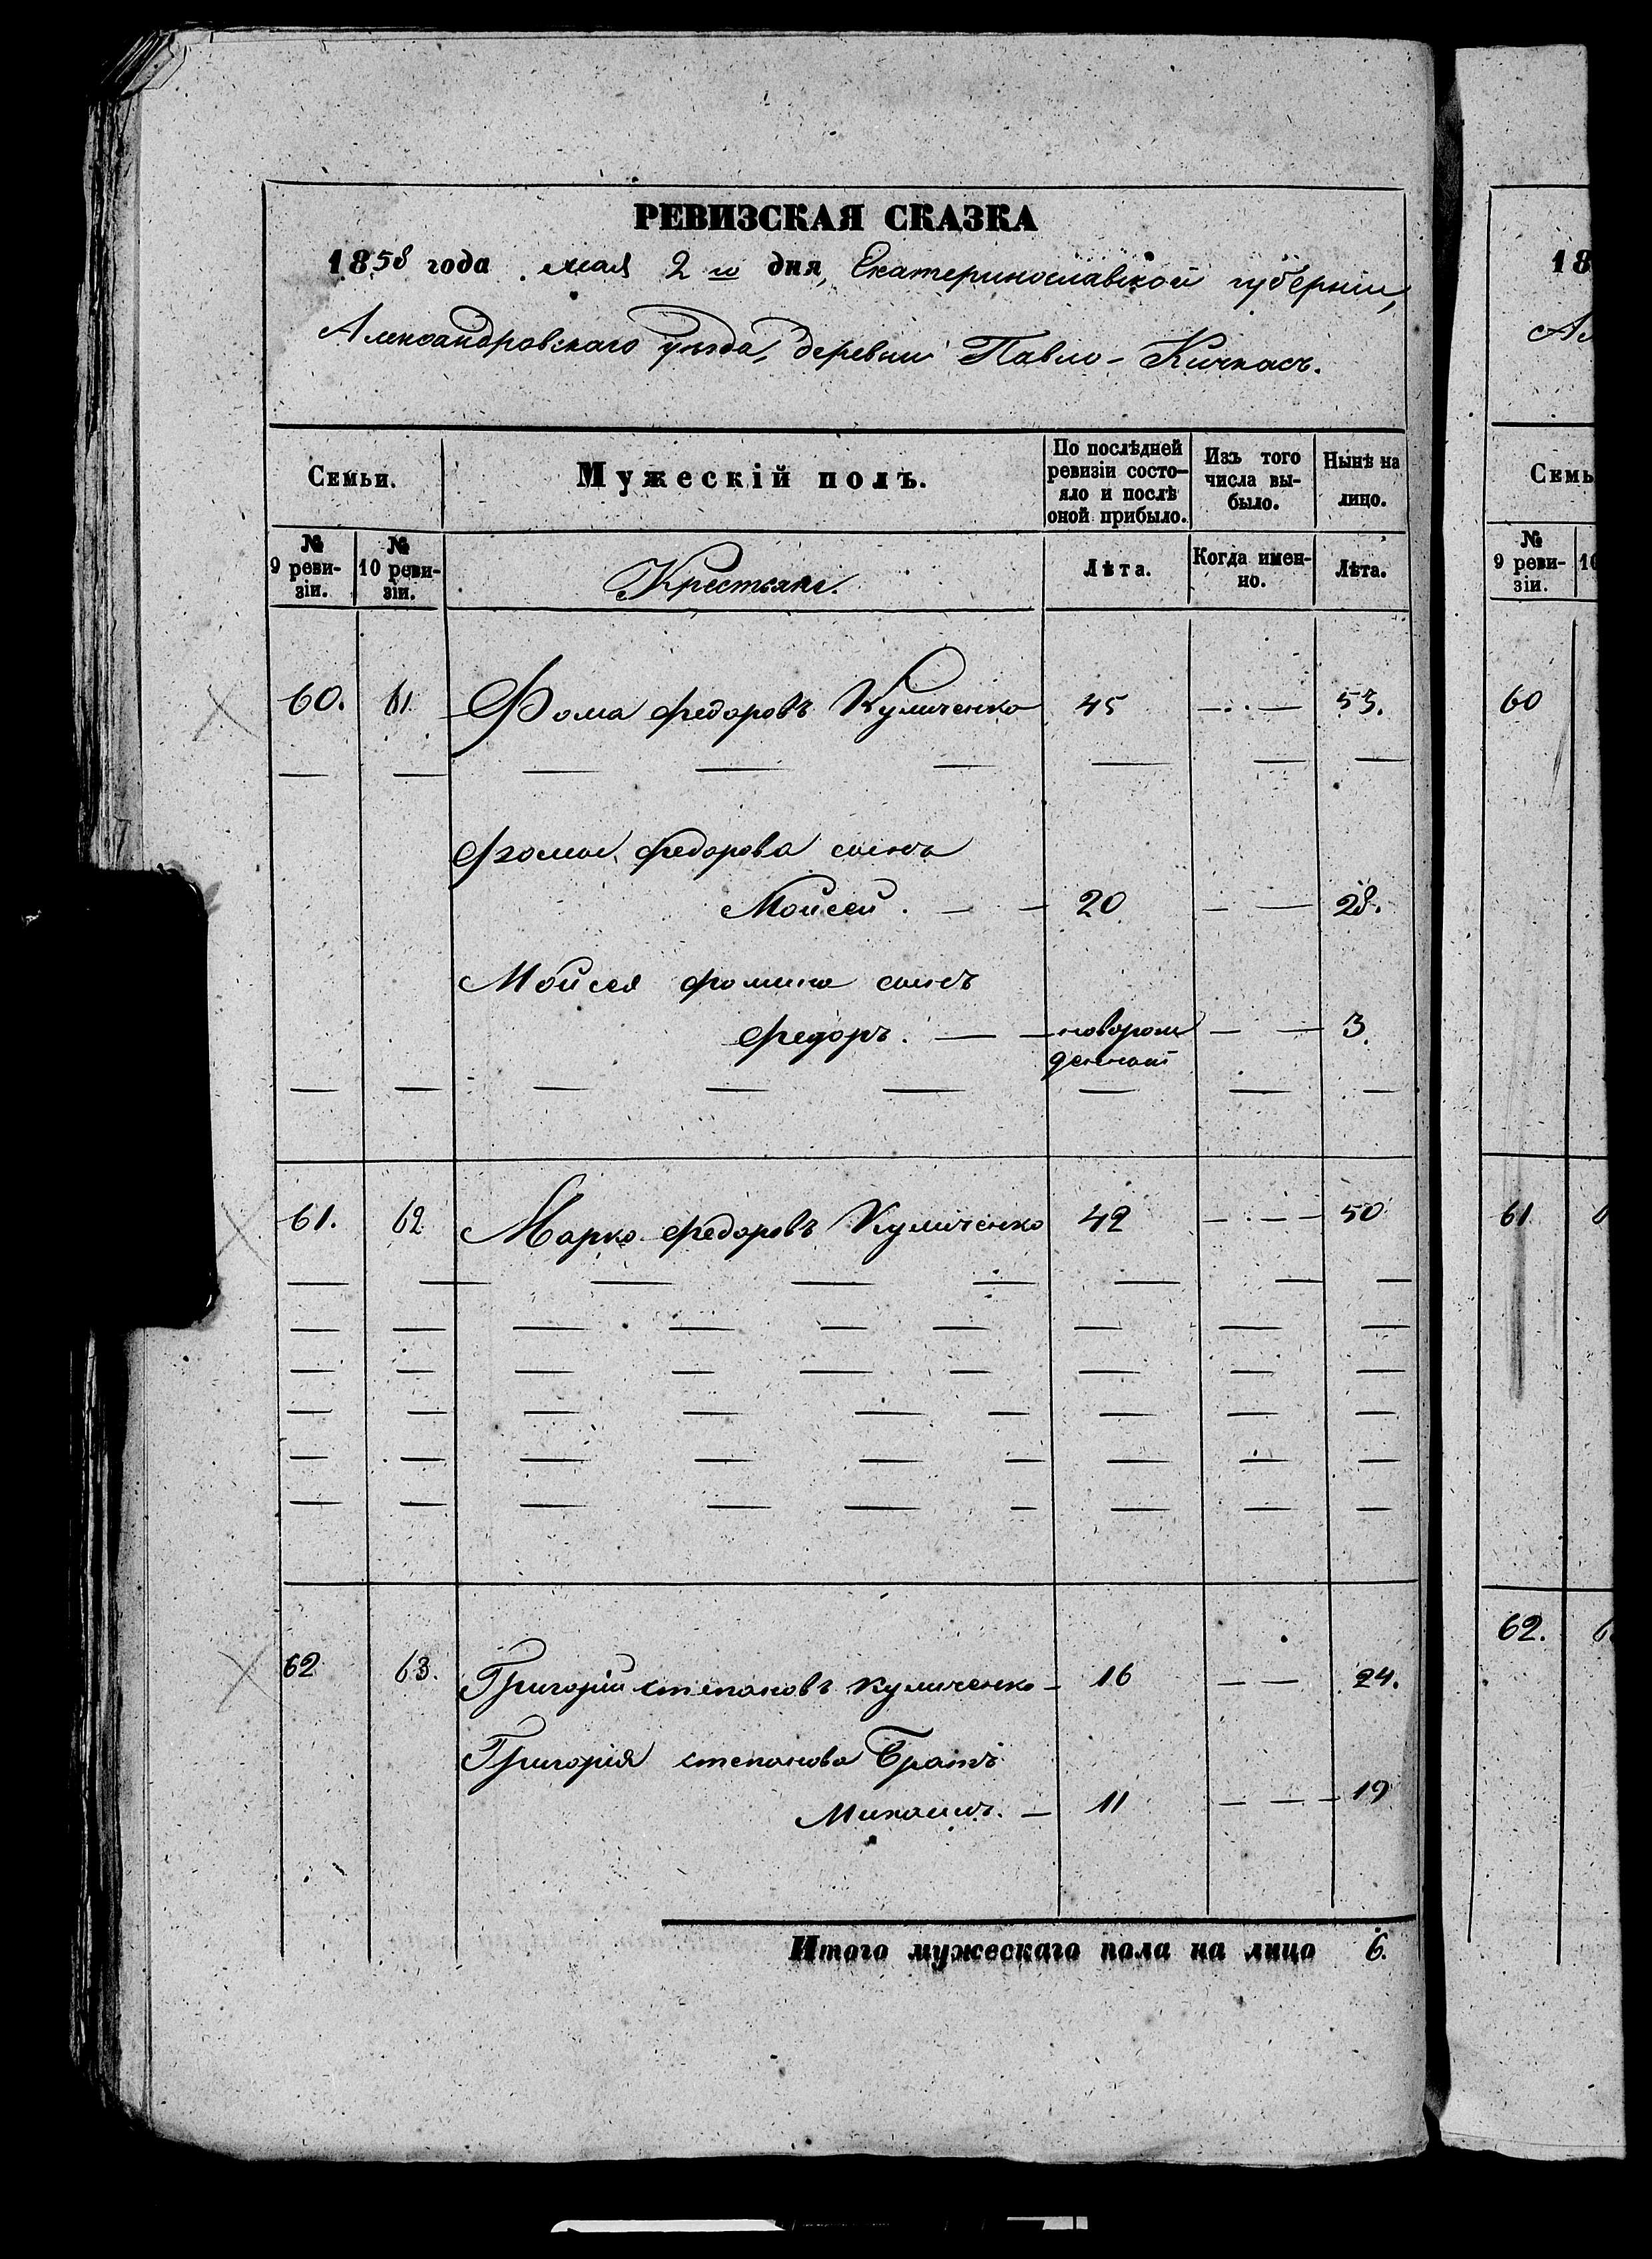 РЕВИЗСКАЯ СКАЗКА
1858 года мая 2го дня, Екатеринославской губернии,
Александровскаго уезда, деревни Павло-Кичкасъ.
Семьи.
Мужескій полъ.
По послѣдней ревизіи состояло и послѣ оной прибыло.
Изъ того числа выбыло.
Нынѣ на лицо.
№ 9 ревизіи.
№ 10 ревизіи.
Крестьяне.
Лѣта.
Когда именно.
Лѣта.
60. 61 Фома Федоровъ Куличенко 45 53.
Фомы Федорова сынъ
Мойсей. 20 28.
Мойсея Фомина сынъ
Федоръ. новорож 3.
денный
61. 62 Марко Федоровъ Куличенко 42 50
62 63. Григорій Степановъ Куличенко 16 24.
Григорія Степанова братъ
11 19
Итого мужескаго пола на лицо 6.
18
Семь
№ 9 ревизіи.
10
60
61
62.